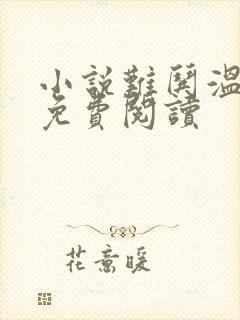 小説難鬪溫
免費閱讀
花意暖